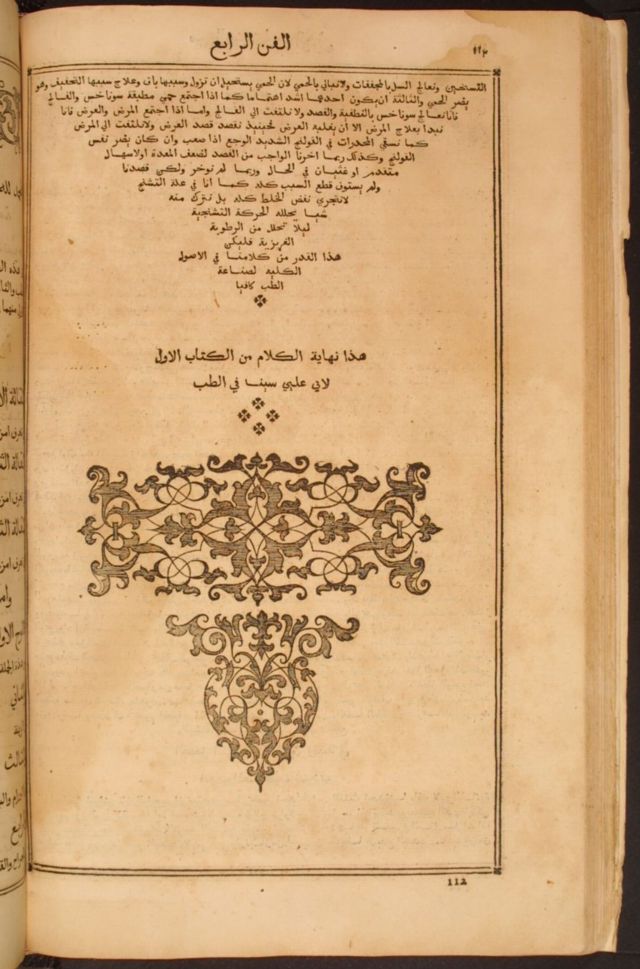 الفن الرابع
١١٢
التسخين ونعالج السل بالمجففات ولا نبالي بالحمي لان الحمي يستحيل ان تزول وسببها باق وعلاج سببها التجفيف وهو
يضر الحمي والثالثة ان يكون احدهما اشد اهتماما كما اذا اجتمع حمي مطبقة سوناخس والفالج
فانا نعالج سوناخس بالتطفية والفصد ولا نلتفت الي الفالج واما اذا اجتمع المرض والعرض فانا
نبدا بعلاج المرض الا ان يغلبه العرض فحينيذ نقصد قصد العرض ولا نلتفت الي المرض
كما نسقي المخدرات في القولنج الشديد الوجع اذا صعب وان كان يضر نفس
القولنج وكذلك ربما اخرنا الواجب من الفصد لضعف المعدة او لاسهال
متقدم او غثيان في الحال وربما لم نوخر ولكن فصدنا
ولم نستوف قطع السبب كله كما انا في علة التشنج
لا نتحري نفض الخلط كله بل نترك منه
شيا تحلله الحركة التشنجية
ليلا تتحلل من الرطوبة
الغريزية فليكن
هذا القدر من كلامنا في الاصول
الكلية لصناعة
الطب كافيا
هذا نهاية الكلام من الكتاب الاول
لابي علي سينا في الطب
112